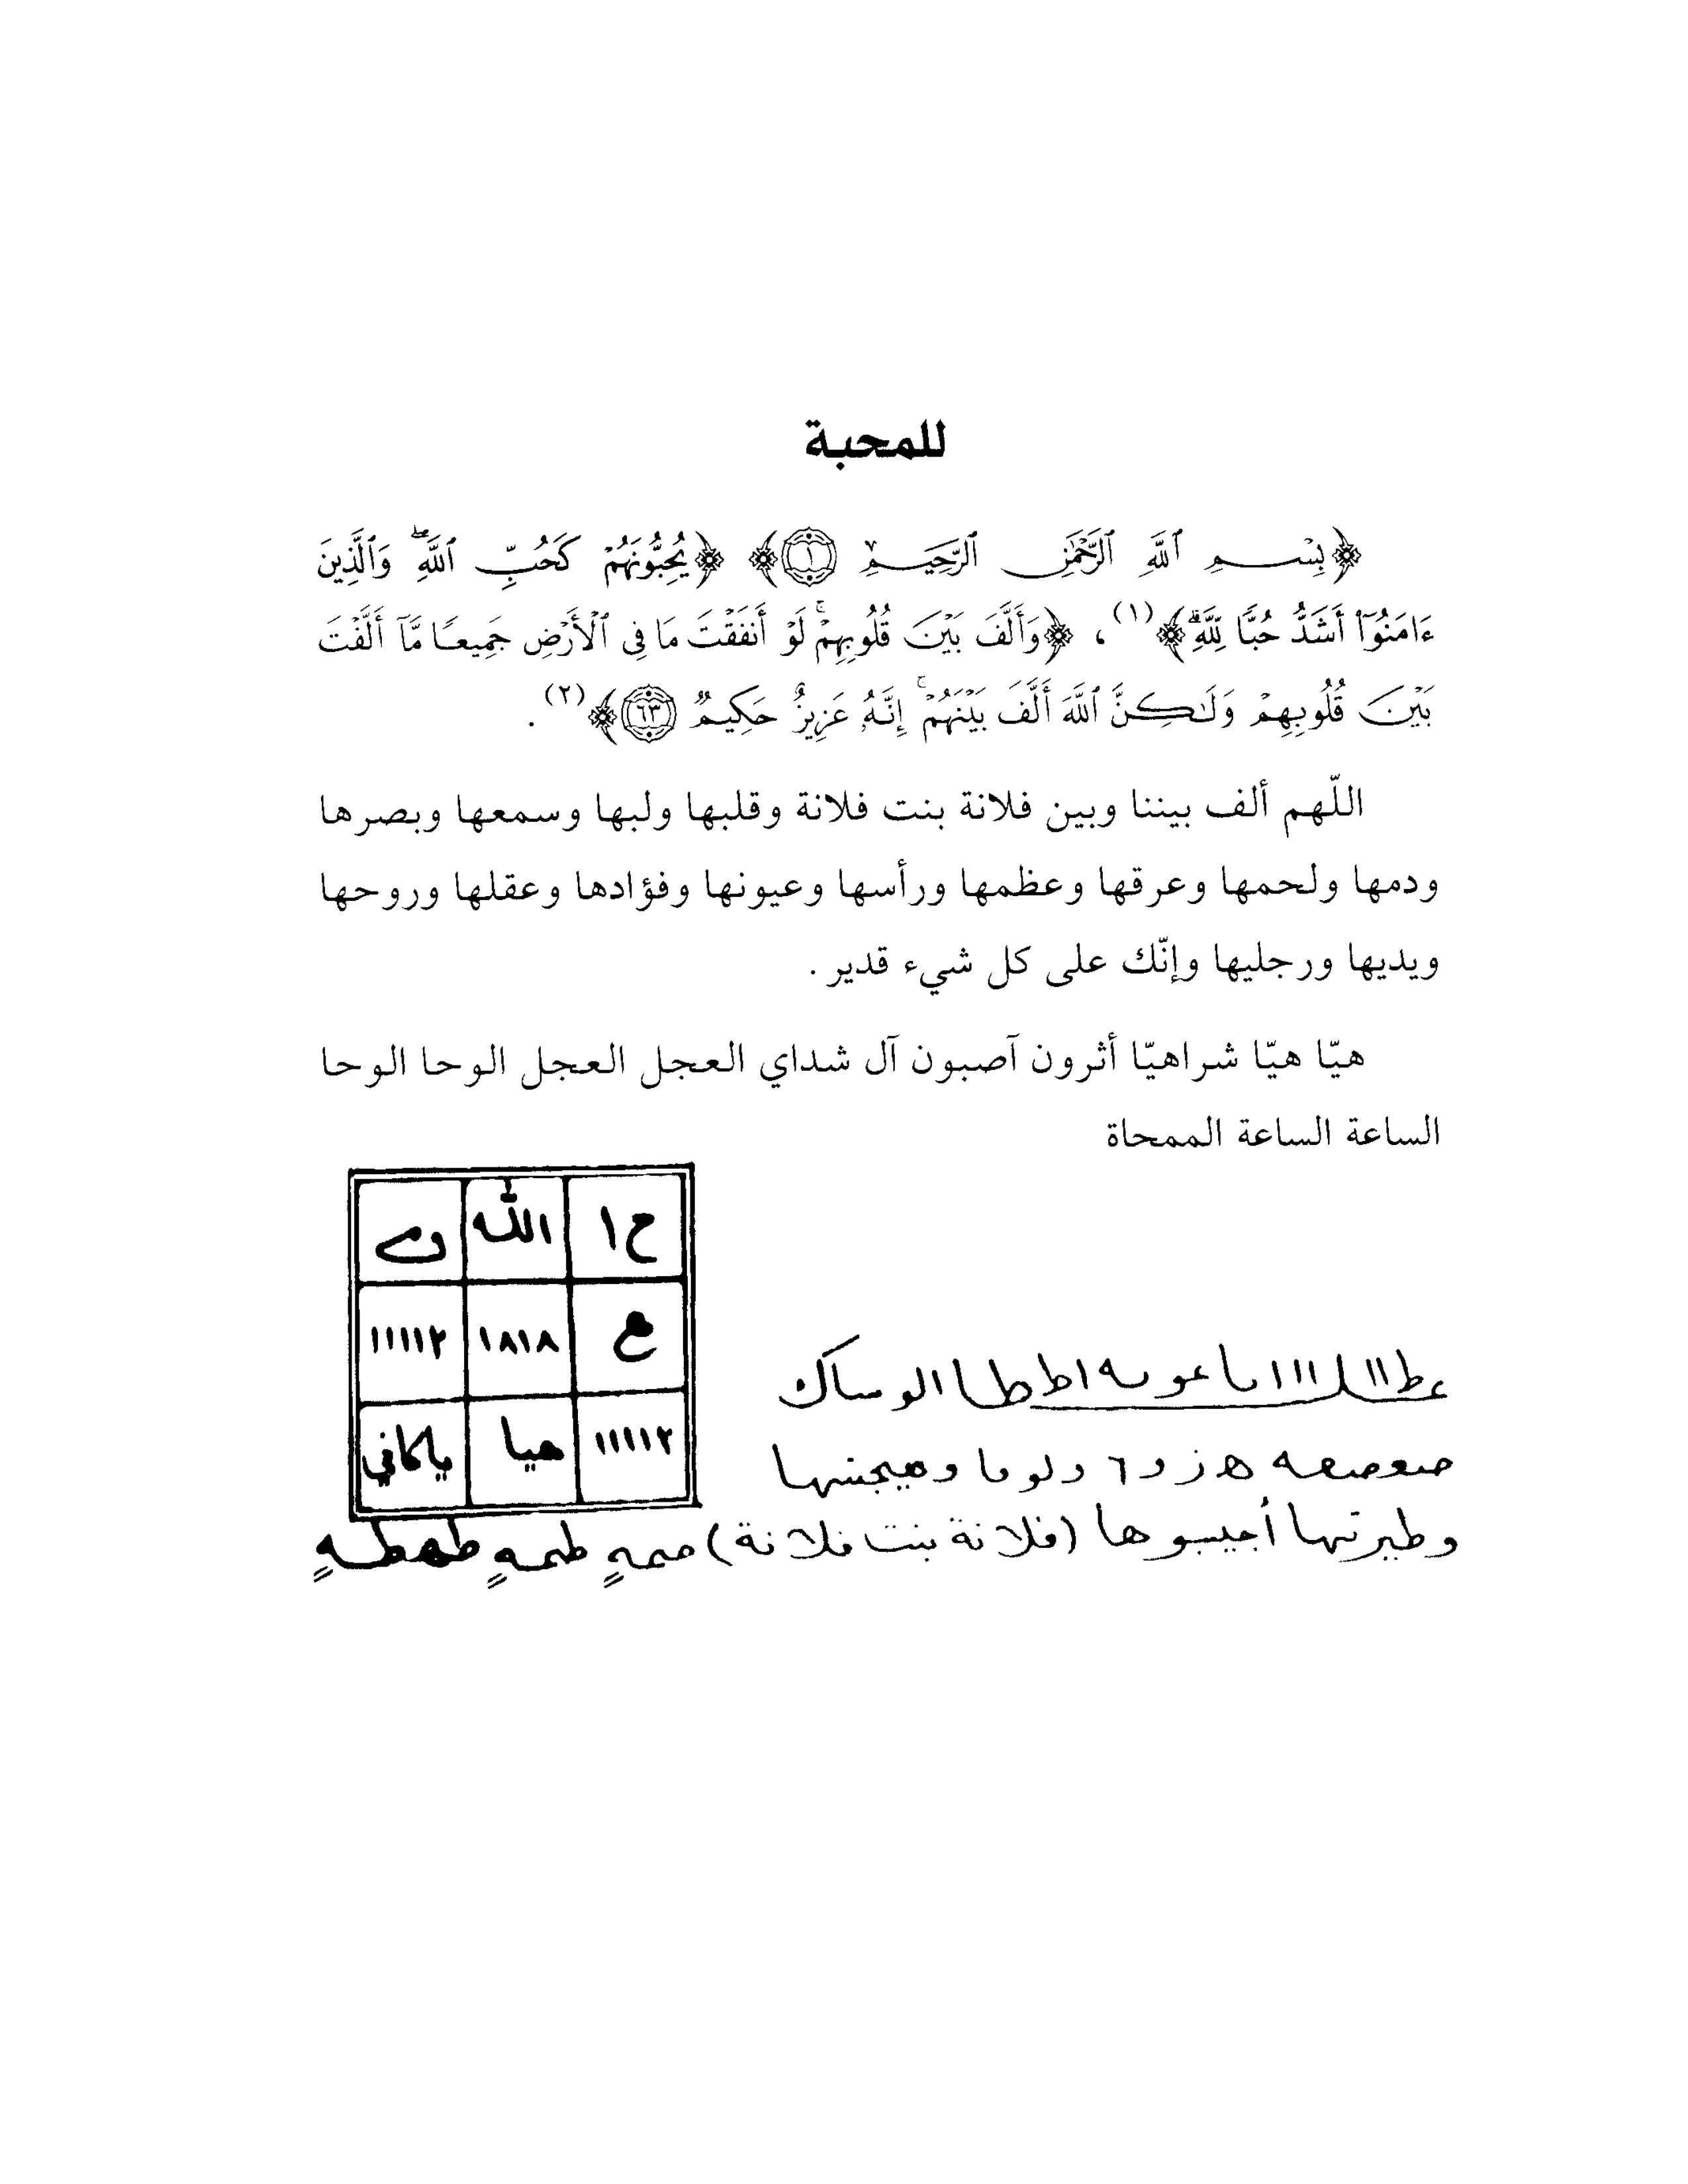 للمحبة
﴿بِسْمِ ٱللَّهِ ٱلرَّحْمَٰنِ ٱلرَّحِيمِ ١﴾ ﴿يُحِبُّونَهُمْ كَحُبِّ ٱللَّهِۖ وَٱلَّذِينَ
ءَامَنُوٓاْ أَشَدُّ حُبًّا لِّلَّهِۗ﴾(١)، ﴿وَأَلَّفَ بَيْنَ قُلُوبِهِمْۚ لَوْ أَنفَقْتَ مَا فِى ٱلْأَرْضِ جَمِيعًا مَّآ أَلَّفْتَ
بَيْنَ قُلُوبِهِمْ وَلَٰكِنَّ ٱللَّهَ أَلَّفَ بَيْنَهُمْۚ إِنَّهُۥ عَزِيزٌ حَكِيمٌ ٦٣﴾(٢).
اللّهم ألف بيننا وبين فلانة بنت فلانة وقلبها ولبها وسمعها وبصرها
ودمها ولحمها وعرقها وعظمها ورأسها وعيونها وفؤادها وعقلها وروحها
ويديها ورجليها وإنّك على كل شيء قدير.
هيّا هيّا شراهيّا أثرون آصبون آل شداي العجل العجل الوحا الوحا
الساعة الساعة الممحاة
ح ا الله
ع ١٨١٨ ١١١١٢
١١١١٢ هيا ياكافي
صعوصعه هـ ز و ٦ ولوما وهيجتها
وطيرتها أجيبوها (فلانة بنت فلانة)